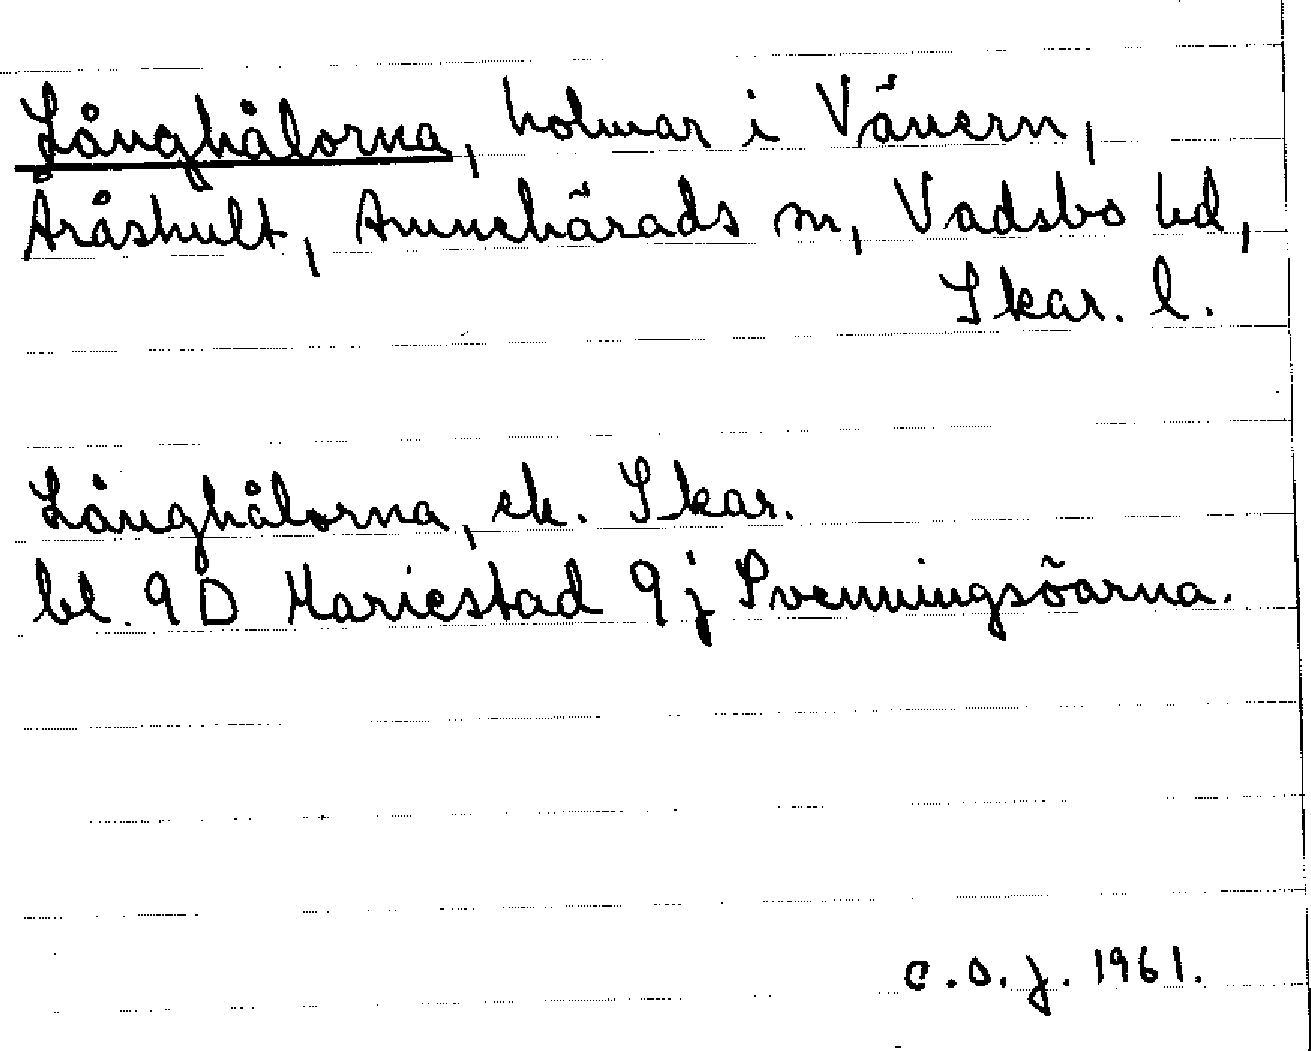 Långhålorna, holmar i Vänern,
Aråshult, Amnehärads sn, Vadsbo hd,
Skar. l.
Långhålorna, ek. Skar.
bl. 9D Mariestad 9j Svenningsöarna.
C.O.J. 1961.